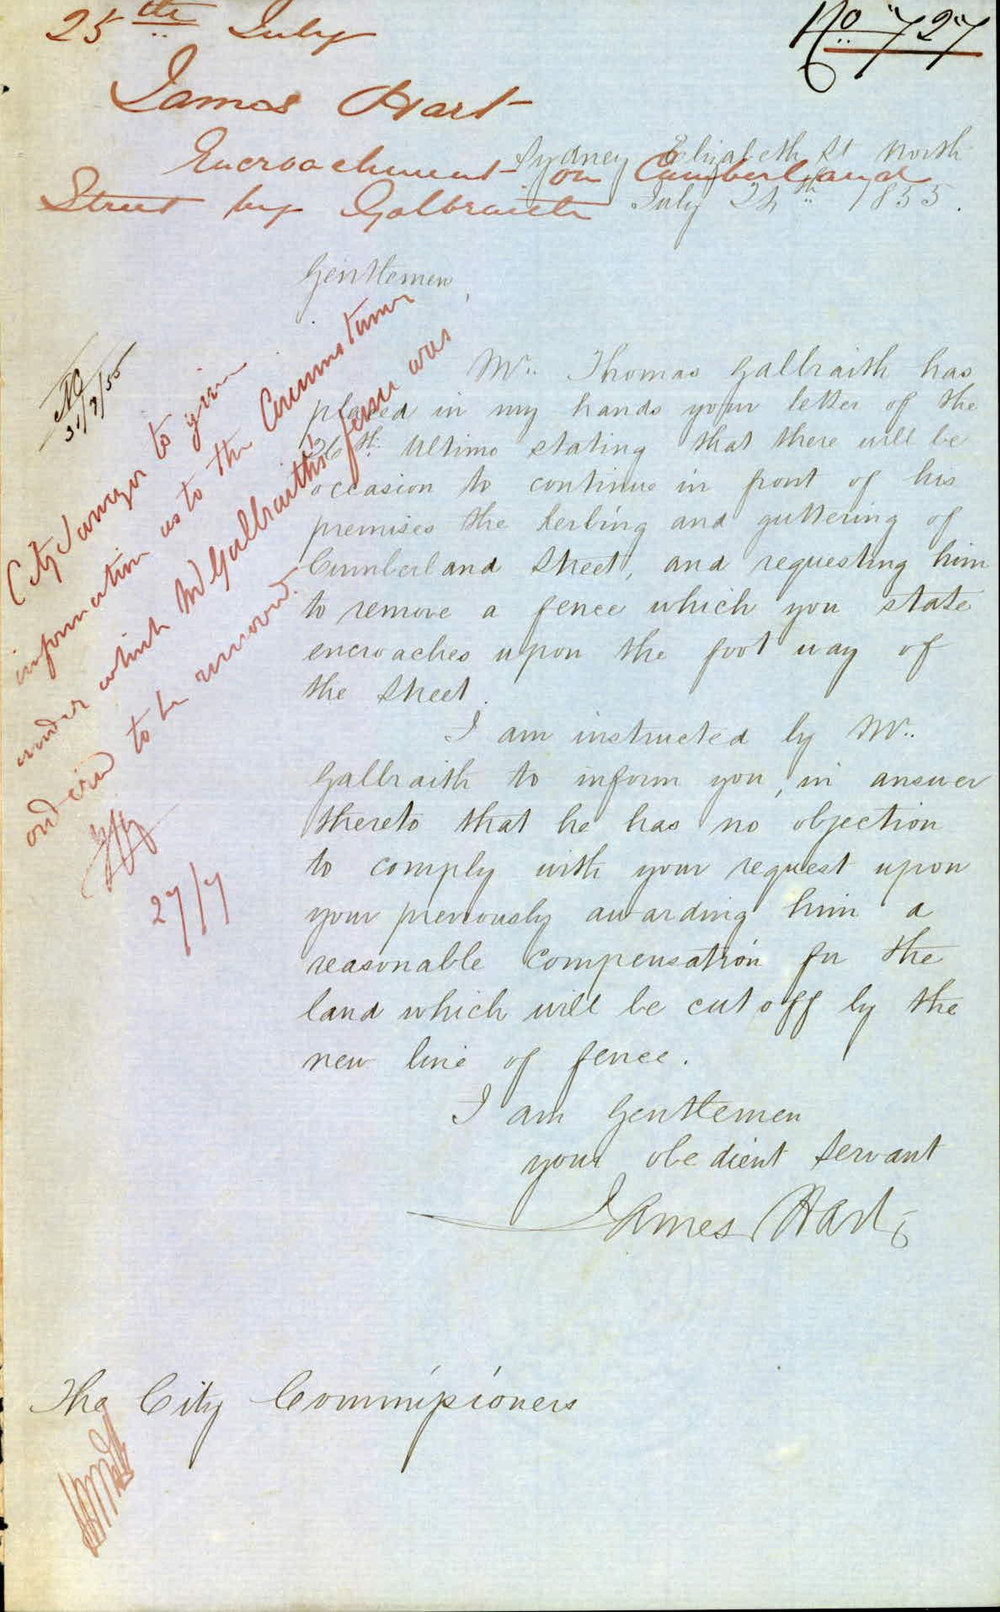 25th July
No 727
James Hart
Encroachment on Cumberland
Street by Galbraith
Sydney Elizabeth St North
July 24th 1855.
Gentlemen,
Mr. Thomas Galbraith has
placed in my hands your letter of the
26th Ultimo stating that there will be
occasion to continue in front of his
premises the kerbing and guttering of
Cumberland Street, and requesting him
to remove a fence which you state
encroaches upon the foot way of
the Street.
I am instructed by Mr.
Galbraith to inform you, in answer
thereto that he has no objection
to comply with your request upon
your previously awarding him a
reasonable compensation for the
land which will be cut off by the
new line of fence.
I am Gentlemen
your obedient Servant
James Hart
The City Commissioners
31/7/55
City Surveyor to give
information as to the Circumstances
under which Mr Galbraith's fence was
ordered to be removed.
27/7